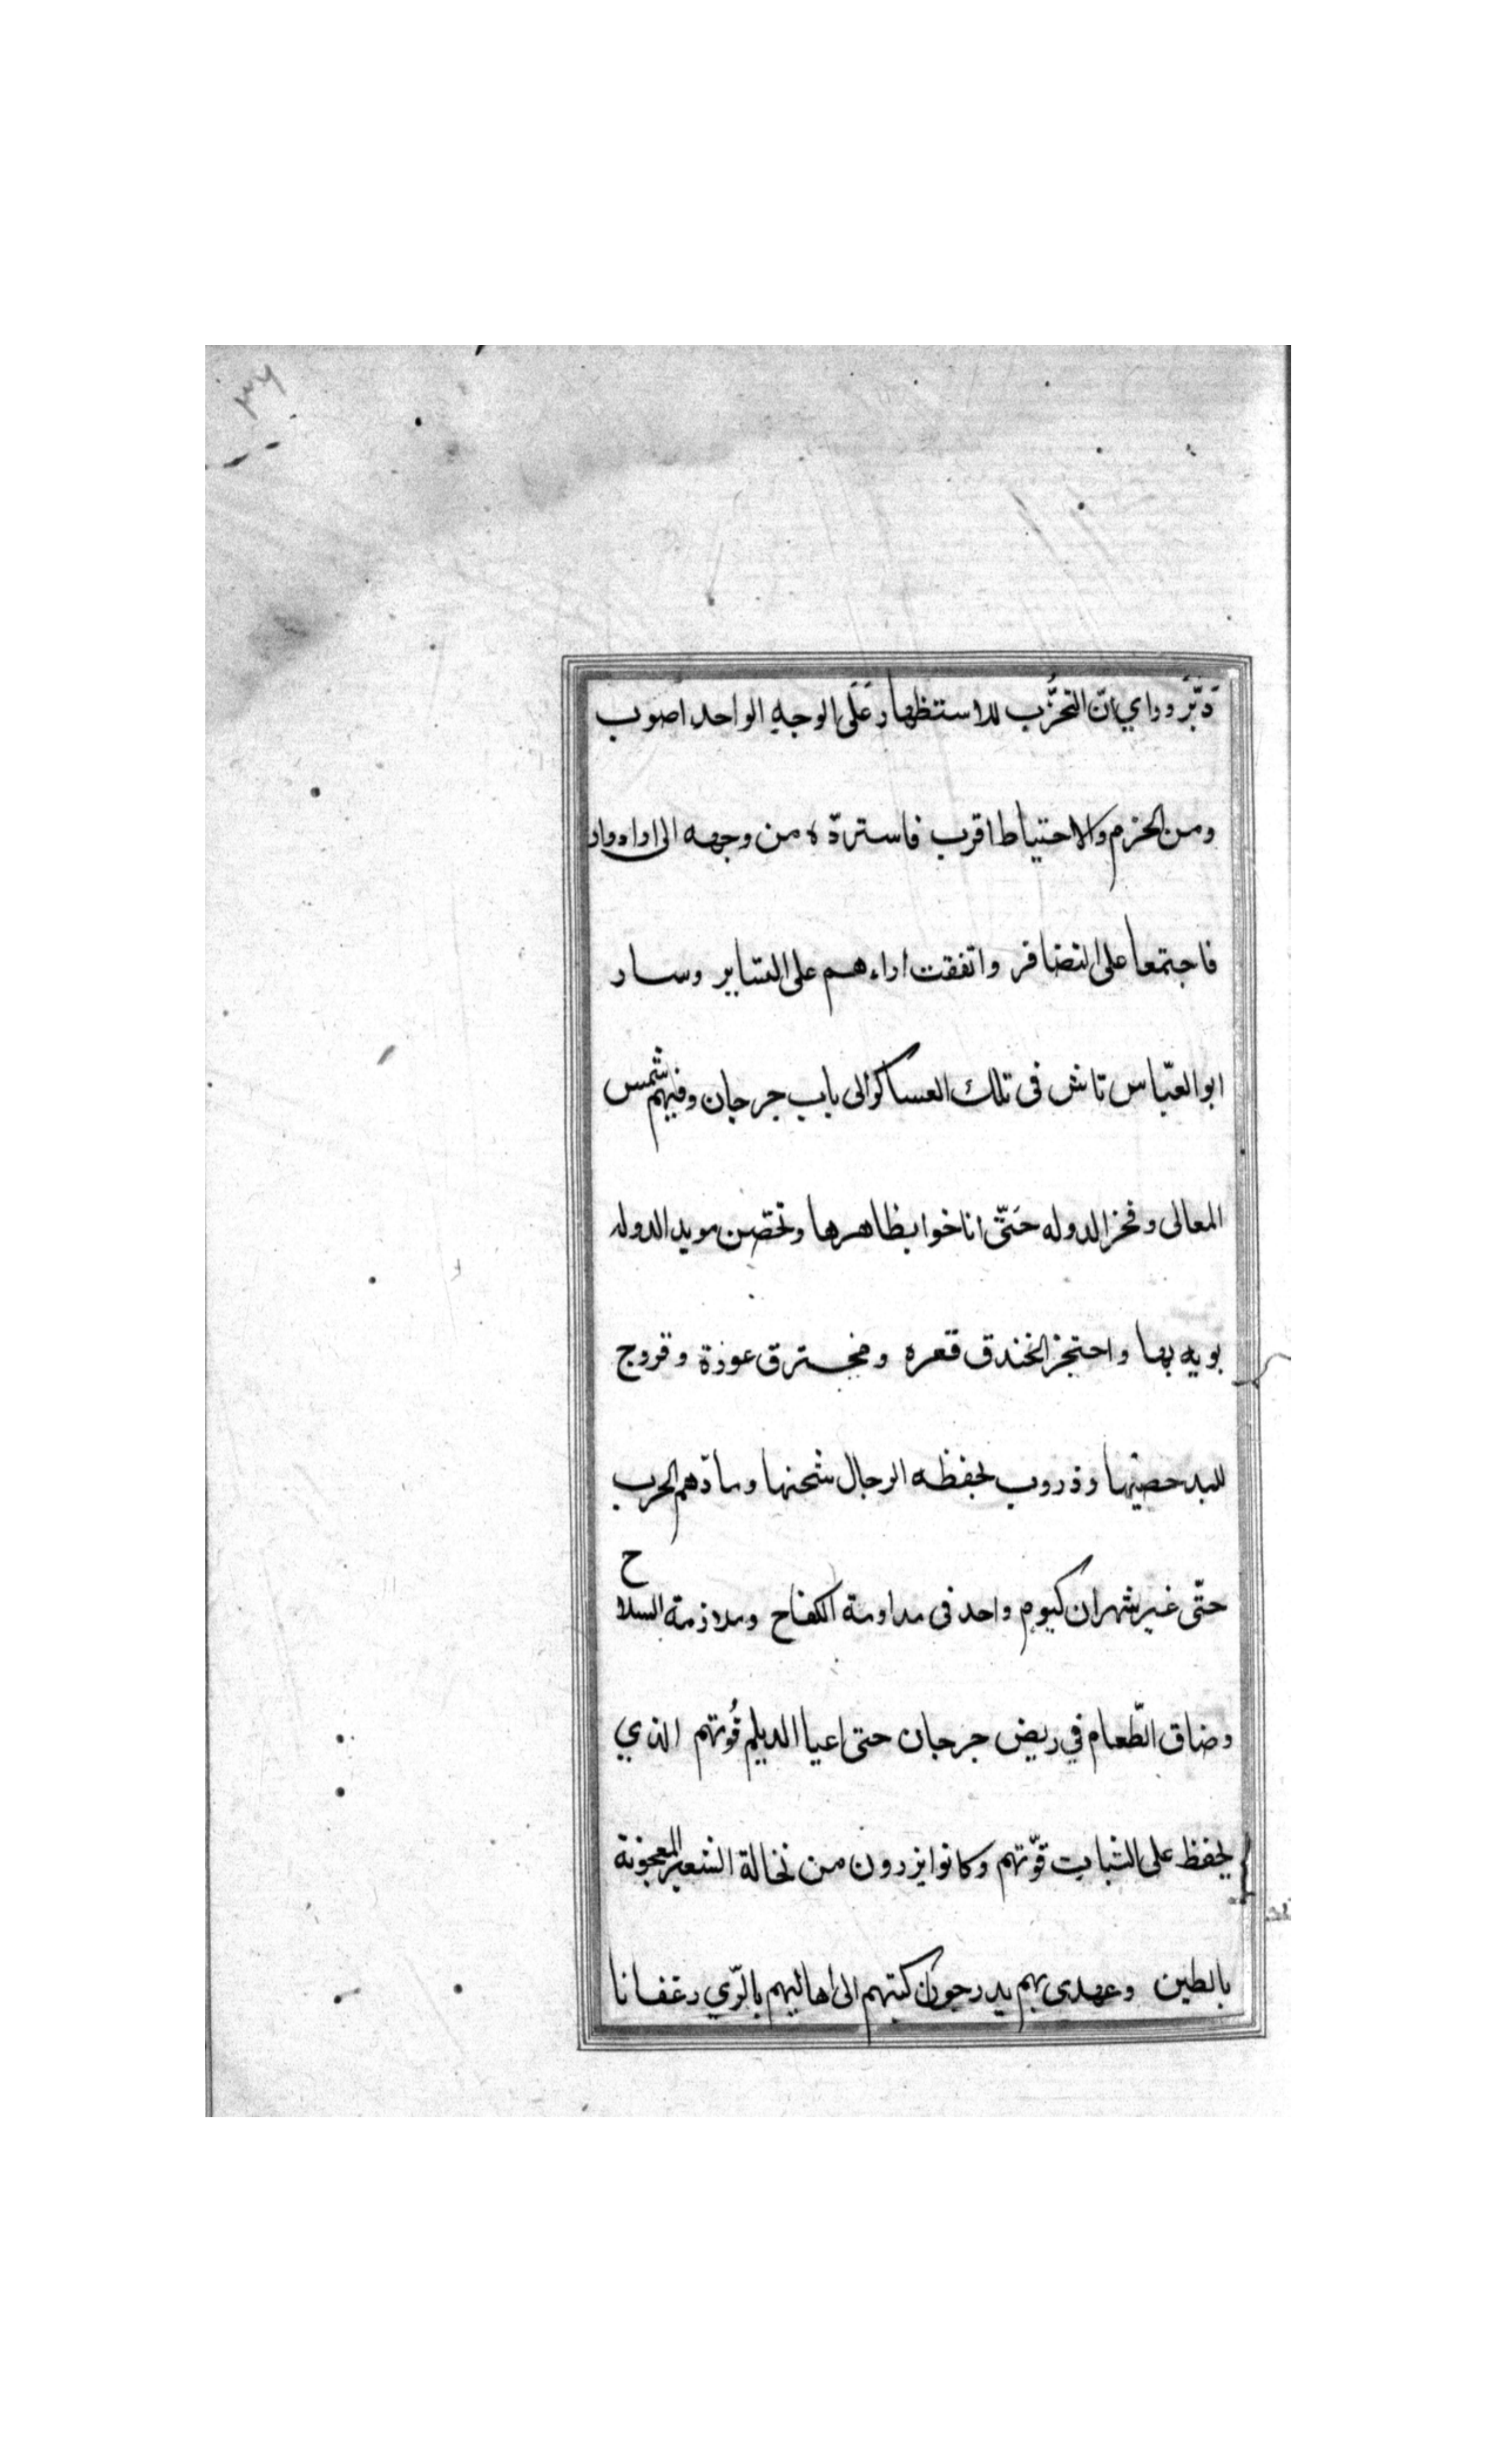 ٣٦
دَبَّرَ وراي انّ التحزُّب للاستظهار عَلَى الوجهِ الواحد اصوب
ومن الحزم والاحتياط اقرب فاستردّه من وجهه الى
فاجتمعا على التضافر واتفقت اراءهم على التساير وسار
ابو العبّاس تاش فى تلك العساكر الى باب جرجان وفيهم شمس
المعالى وفخر الدوله حَتّى اناخوا بظاهرها وتحصّن مويد الدوله
بويه بها واحتجز الخندق قعره ومخترق عورة وفروج
للبد حصينها ودروب بحفظه الرجال شحنها وسادّهم الحرب
حتّى غير شهران كيوم واحد فى مداومة الكفاح وملازمة السلاح
وضاق الطّعام في ربض جرجان حتى اعيا الديلم قُوتهم الذي
يحفظ على الثبات قوّتهم وكانوا يزردون من نخالة الشعير المعجونة
بالطين وعهدى بهم يدرجون كتبهم الى اهاليهم بالرّي رغفانا